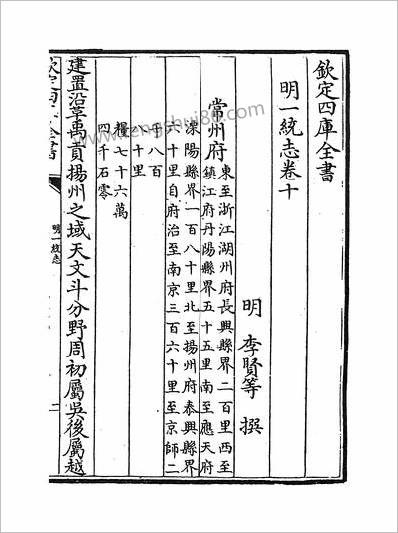 欽定四庫全書
明一統志卷十
明 李賢等 撰
常州府
東至浙江湖州府長興縣界二百里西至
鎮江府丹陽縣界五十五里南至應天府
溧陽縣界一百八十里北至揚州府泰興縣界
六十里自府治至南京三百六十里至京師二
千八百
十里
糧七十六萬
四千石零
建置沿革禹貢揚州之域天文斗分野周初屬吳後屬越
欽定四庫全書
明一統志
www.fengshui86.com